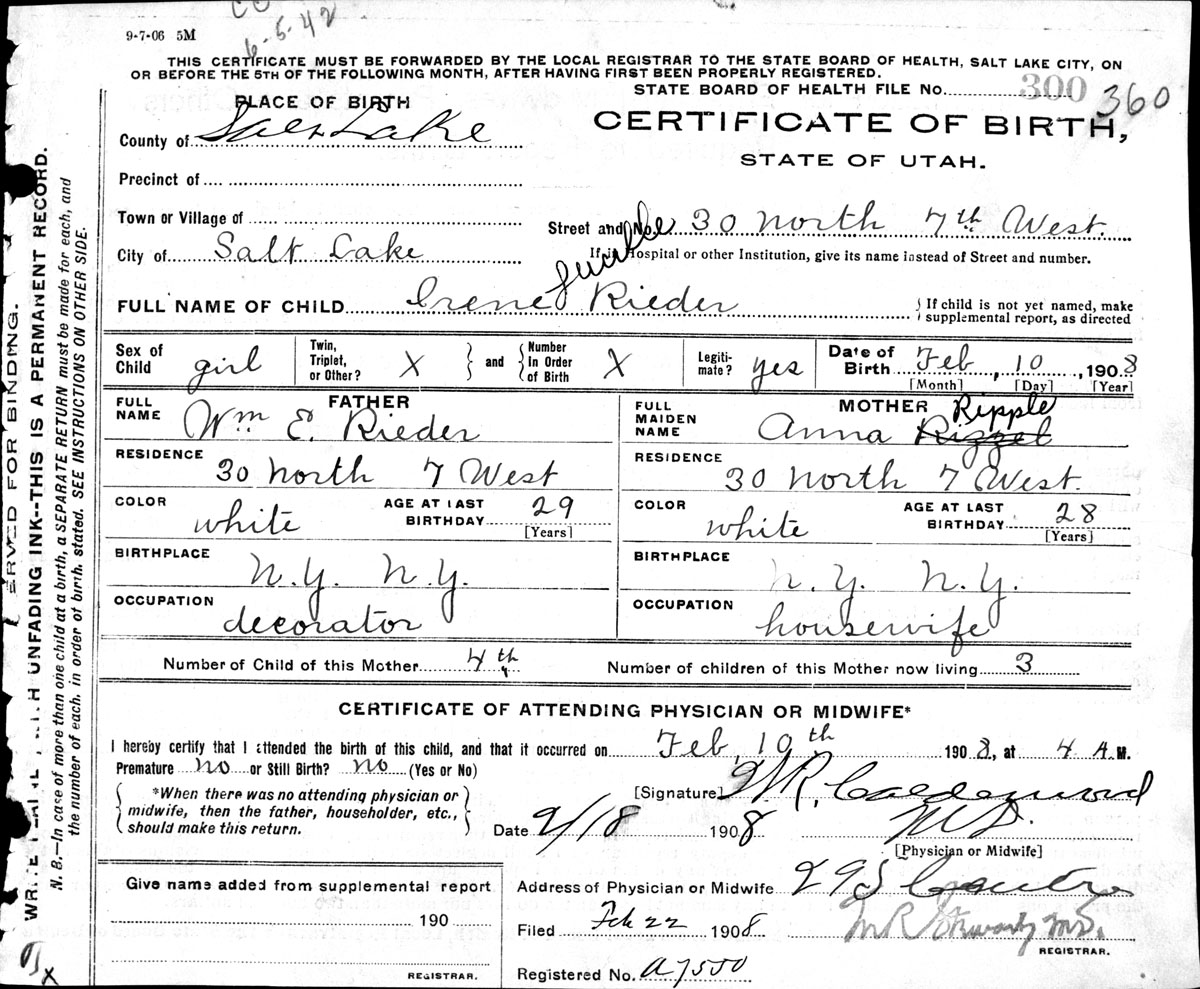 9-7-06 5M
6-5-42
THIS CERTIFICATE MUST BE FORWARDED BY THE LOCAL REGISTRAR TO THE STATE BOARD OF HEALTH, SALT LAKE CITY, ON
OR BEFORE THE 5TH OF THE FOLLOWING MONTH, AFTER HAVING FIRST BEEN PROPERLY REGISTERED.
STATE BOARD OF HEALTH FILE No. 300 360
PLACE OF BIRTH
CERTIFICATE OF BIRTH,
County of Salt Lake
STATE OF UTAH.
Precinct of
Town or Village of
Street and No. 30 North 7th West.
City of Salt Lake
If in Hospital or other Institution, give its name instead of Street and number.
Lucille
FULL NAME OF CHILD Irene Rieder
{If child is not yet named, make supplemental report, as directed
Sex of Child girl Twin, Triplet, or Other? X } and { Number In Order of Birth X Legiti- mate? yes Date of Birth Feb, 10, 1908
[Month] [Day] [Year]
FATHER MOTHER Ripple
FULL NAME Wm E. Rieder FULL MAIDEN NAME Anna Rizzel
RESIDENCE 30 North 7 West RESIDENCE 30 North 7 West.
COLOR white AGE AT LAST BIRTHDAY 29 [Years] COLOR white AGE AT LAST BIRTHDAY 28 [Years]
BIRTHPLACE N.Y. N.Y. BIRTHPLACE N.Y. N.Y.
OCCUPATION decorator OCCUPATION housewife
Number of Child of this Mother 4th Number of children of this Mother now living 3
CERTIFICATE OF ATTENDING PHYSICIAN OR MIDWIFE*
I hereby certify that I attended the birth of this child, and that it occurred on Feb, 10th 1908, at 4 A.M.
Premature no or Still Birth? no (Yes or No)
*When there was no attending physician or midwife, then the father, householder, etc., should make this return.
[Signature] W R, Calderwood
Date 2/18 1908 M D.
[Physician or Midwife]
Give name added from supplemental report
Address of Physician or Midwife 29 S
190
Filed Feb 22 1908 M R Stewart M.D.
REGISTRAR.
REGISTRAR.
Registered No. A7550
ERVED FOR BINDING.
WRITE PLAINLY WITH UNFADING INK--THIS IS A PERMANENT RECORD.
N. B.—In case of more than one child at a birth, a SEPARATE RETURN must be made for each, and
the number of each, in order of birth, stated. SEE INSTRUCTIONS ON OTHER SIDE.
X